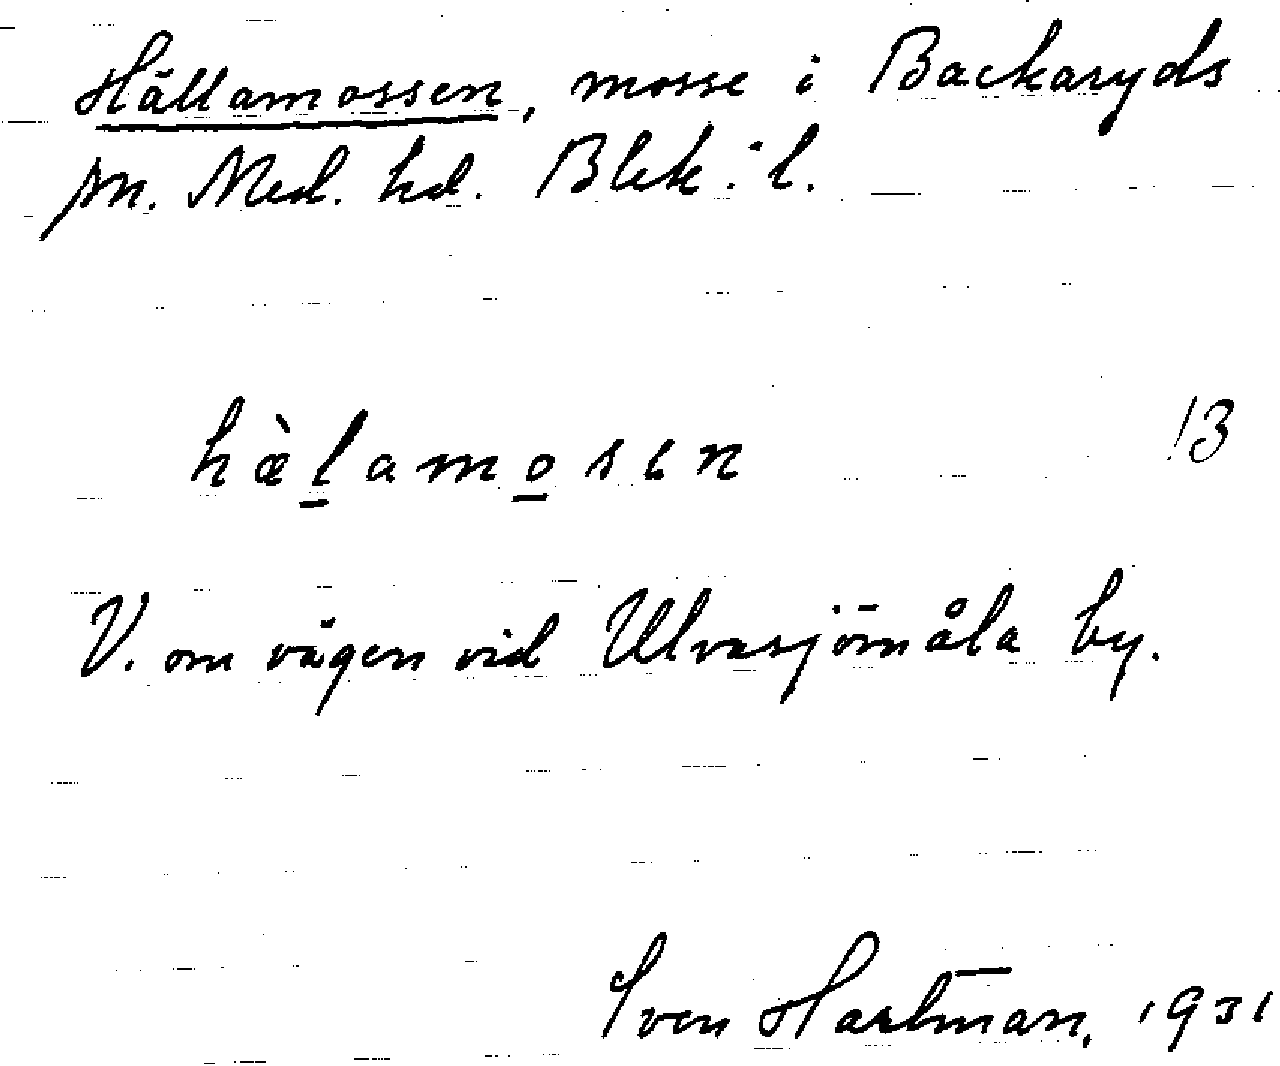 Hällamossen, mosse i Backaryds
sn. Med. hd. Blek. l.
hæ̀l̲amo̲sen 13
V. om vägen vid Ulvasjömåla by.
Sven Hartman, 1931